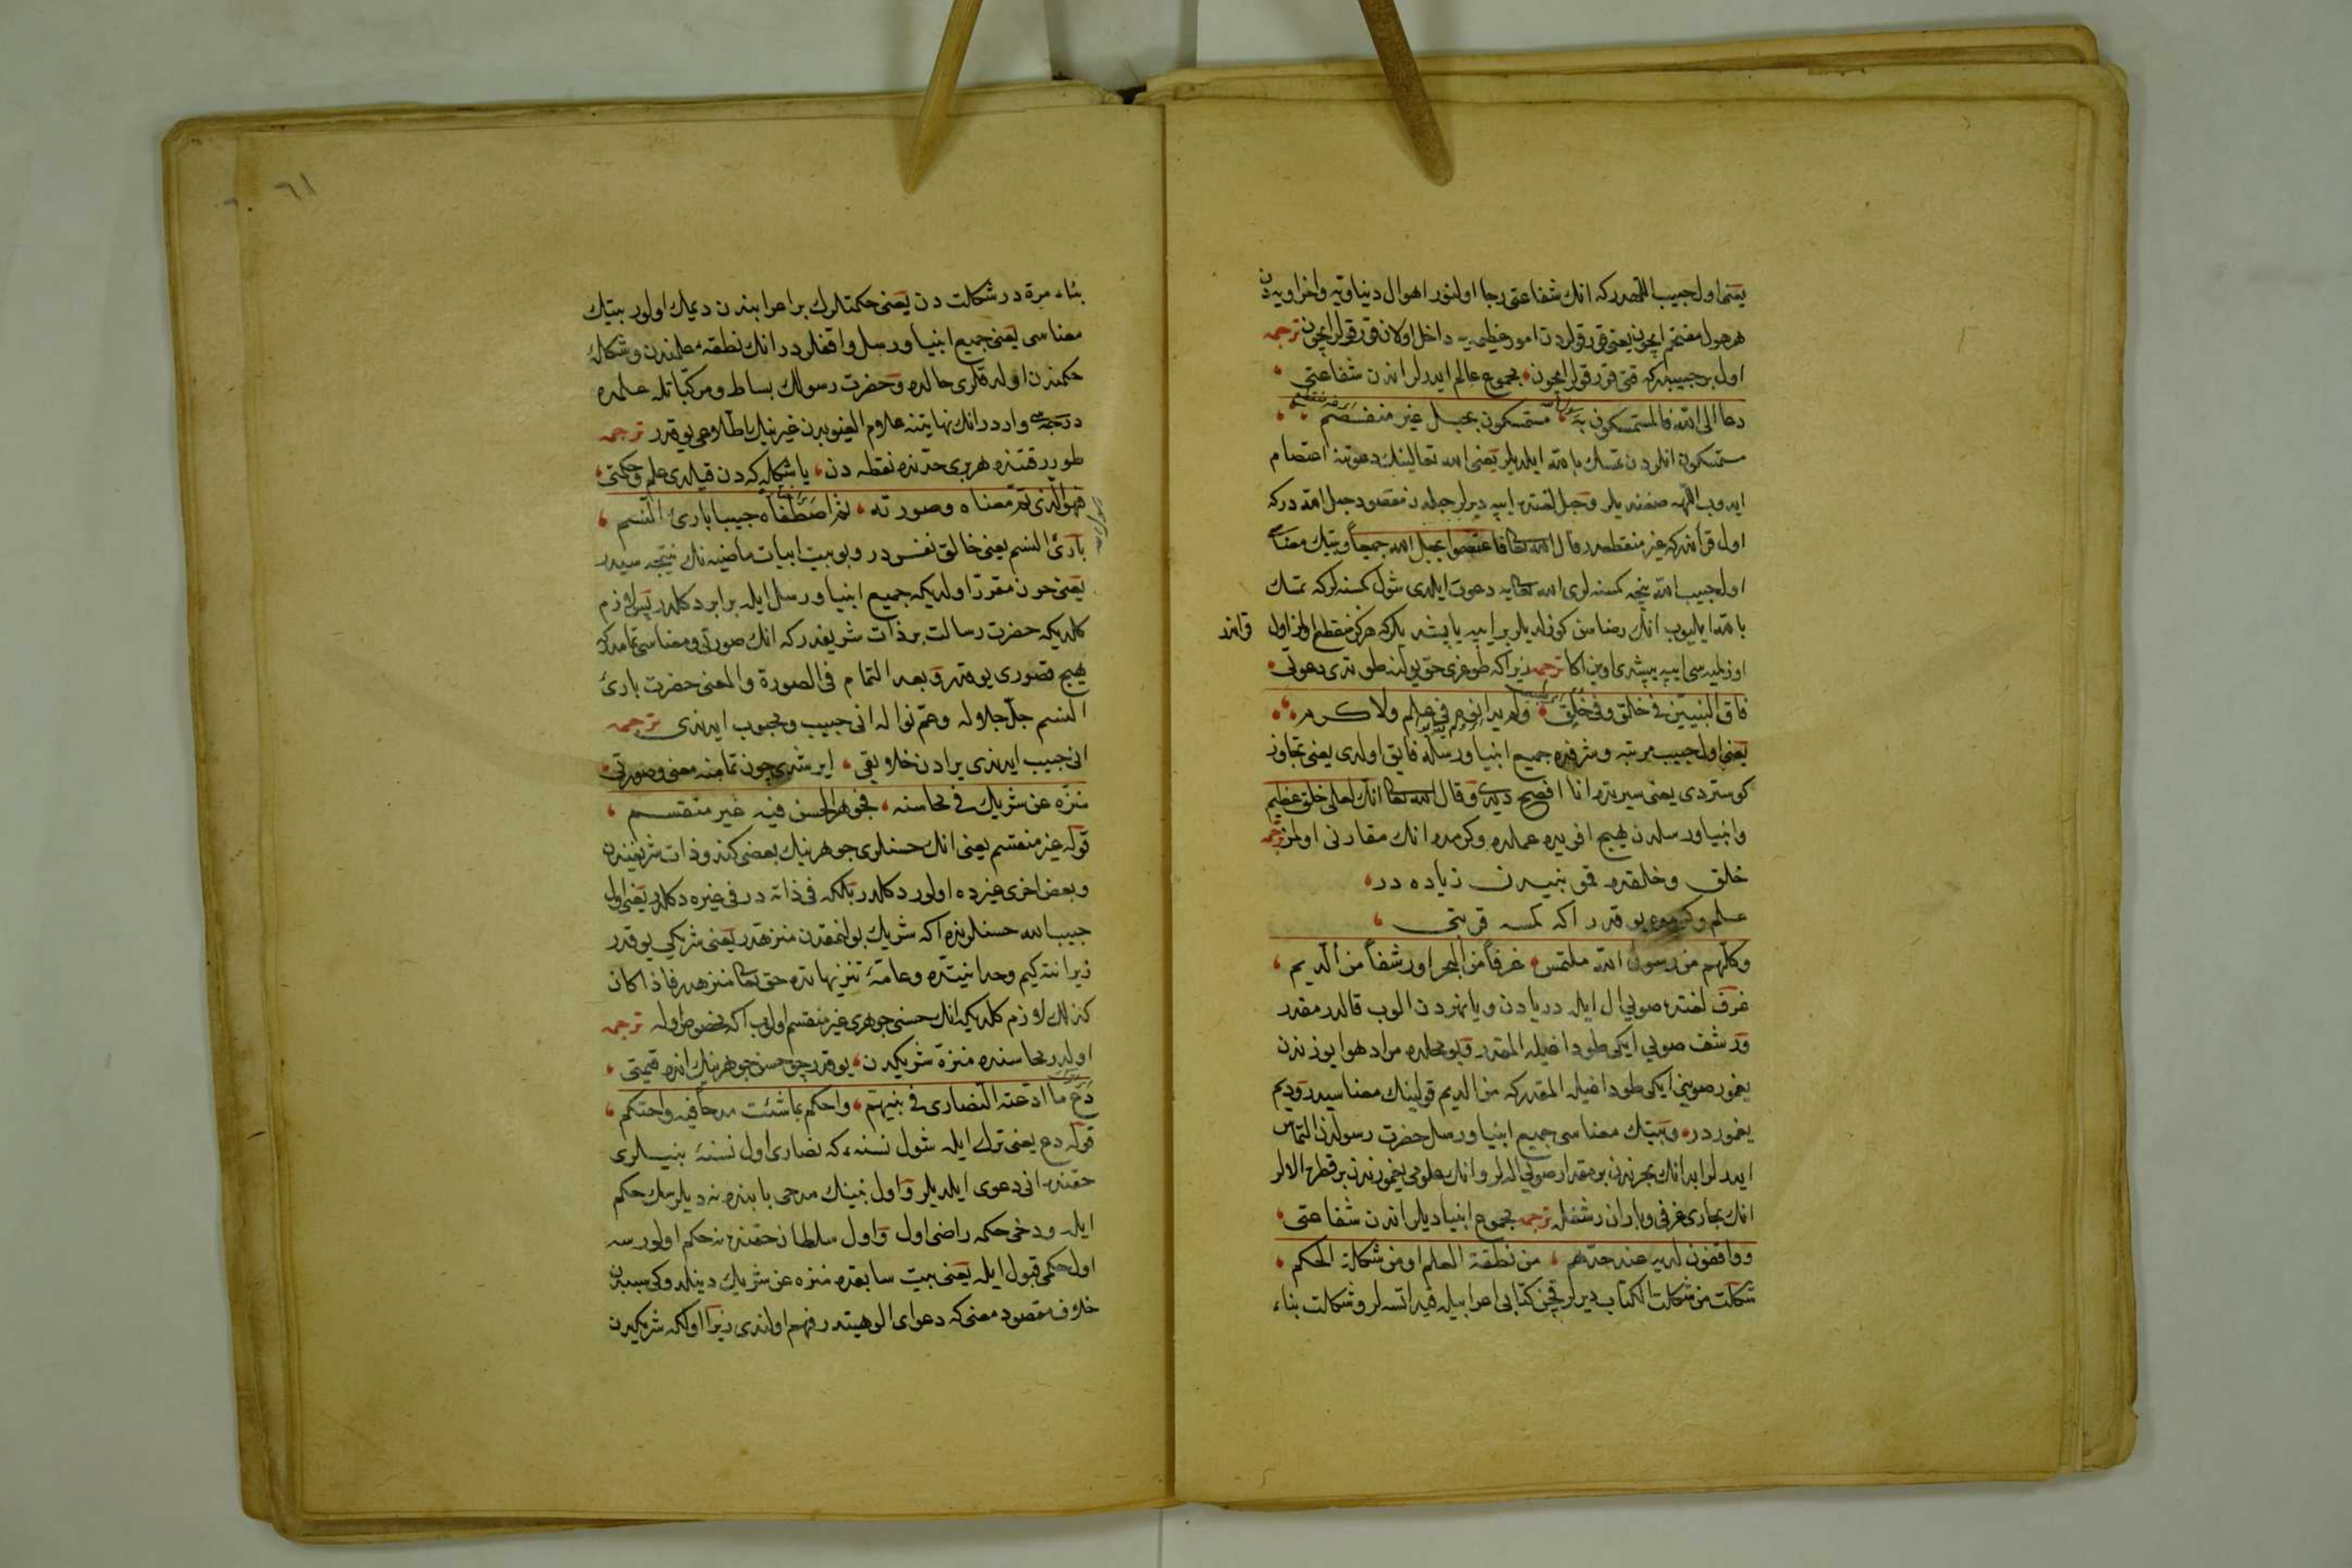 يعنى اول حبيب اللهدركه انك شفاعتى رجا اولنور اهوال دنياويه واخراويه دن
هر هول مقتحم ايچون يعنى قورقولردن امور عظيمه يه داخل اولان قورقولر ايچون ترجمه
اول بر حبيبدركه قتى قورقولر ايچون مجموع عالم ايدرلر اندن شفاعتى
دعا الى الله فالمستمسكون به مستمسكون بحبل غير منفصم
مستمسكون انلردن تمسك بالله ايلديلر يعنى الله تعالينك دعوتنه اعتصام
ايدوب اللهه صغنديلر وحبل لغتده ايپه ديرلر حبلدن مقصود حبل الله دركه
اول قرآندركه غير منقطعدر قال الله تعالى فاعتصموا بحبل الله جميعا وبيتك معناسى
اول حبيب الله نيجه كمسنه لرى الله تعالى يه دعوت ايلدى شول كمسنه لركه تمسك
بالله ايليوب انك رضاسن كوزلديلر بر ايپه ياپشديلركه هركز منقطع اولمز اول
قرآندر
اوزلميه سى ايپه يپشدى اويان اكا ترجمه زيرا كه طوغرى حق يولنه طوتدى دعوتى
فاق النبيين فى خلق وفى خلق ولم يدانوه فى علم ولا كرم
يعنى اول حبيب مرتبه وشرفده جميع انبيا ورسله فايق اولدى يعنى تجاوز
كوستردى يعنى سيرتده انا افصح ديدى وقال الله تعالى انك لعلى خلق عظيم
وانبيا ورسلدن هيچ افريده علمده وكرمده انك مقارنى اولمز ترجمه
خلق وخلقده قمو نبيدن زياده در
علم وكرمده يوقدر اكه كمسه قربتى
وكلهم من رسول الله ملتمس غرفا من البحر اورشفا من الديم
غرف لغتده صويى ال ايله دريادن ويا نهردن الوب قالدرمقدر
ورشف صويى ايكى طوداغيله المقدر وبو محلده مراد هوا يوزندن
يغمور صوينى ايكى طوداغيله المقدركه من الديم قولينك معناسيدر وديم
يغموردر وبيتك معناسى جميع انبيا ورسل حضرت رسولدن التماس
ايدرلر ايدى انك بحرندن بر مقدار صويى الدلر وانك علومى يغمورندن بر قطره الالر
انك بحارى غرفى وباران رشفله ترجمه مجموع انبيا ديلر اندن شفاعتى
وواقفون لديه عند حدهم من نطقة العلم اومن شكلة الحكم
شكلت من شكلت الكتاب ديرلر قچن كتابى اعرابيله قيد اتسه لر وشكلت بناء
٦١
بناء مرة در شكلت دن يعنى حكمتلرك بر اعرابندن ديمك اولور بيتك
معناسى يعنى جميع انبيا ورسل واقفلردر انك نطقهء علمندن وشكلهء
حكمندن اولدقلرى حالده وحضرت رسولك بساط ومركباتله علمده
درجه سى واردر انك نهايتنه علام الغيوبدن غيرينك اطلاعى يوقدر ترجمه
طورر قتنده هر برى حدنده نقطه دن يا شكله كه دن قيلدى علم وحكمتى
فهو الذى تم معناه وصورته ثم اصطفاه حبيبا بارئ النسم
بارئ النسم يعنى خالق نفسدر وبو بيت ابيات ماضيه نك نتيجه سيدر
يعنى چون مقرر اولديكه جميع انبيا ورسل ايله برابر دكلدر پس لازم
كلديكه حضرت رسالت بر ذات شريفدركه انك صورتى ومعناسى تمامدركه
هيچ قصورى يوقدر وبعد التمام فى الصورة والمعنى حضرت بارئ
النسم جل جلاله وعم نواله انى حبيب ومحبوب ايدندى ترجمه
انى حبيب ايدندى يرادن خلايقى ايرشدى چون تمامنه معنى وصورتى
منزه عن شريك فى محاسنه فجوهر الحسن فيه غير منقسم
قوله غير منقسم يعنى انك حسنلرى جوهرينك بعضى كندو ذات شريفنده
وبعض اخرى غيرده اولور دكلدر بلكه فى ذاته در فى غيره دكلدر يعنى اول
حبيب الله حسنلرنده اكه شريك بولنمقدن منزهدر يعنى شريكى يوقدر
زيرا نته كيم وحدانيتده وعامهء تنزيهاتده حق تعالى منزهدر فاذا كان
كذلك لازم كلديكه انك حسنى جوهرى غير منقسم اولوب اكه مخصوص اوله ترجمه
اولدر محاسنده منزه شريكدن يوقدر چو حسن جوهرينك انده قيمتى
دع ما ادعته النصارى فى نبيهم واحكم بما شئت مدحا فيه واحتكم
قوله دع يعنى ترك ايله شول نسنه كه نصارى اول نسنهء نبيلرى
حقنده انى دعوى ايلديلر واول نبينك مدحى بابنده نه ديلرسك حكم
ايله ودخى حكمه راضى اول واول سلطان حقنده نه حكم اولورسه
اول حكمى قبول ايله يعنى بيت سابقده منزه عن شريك دينلدوكى سببدن
خلاف مقصود معنى كه دعواى الوهيتدر فهم اولندى زيرا اولكه شريكدن